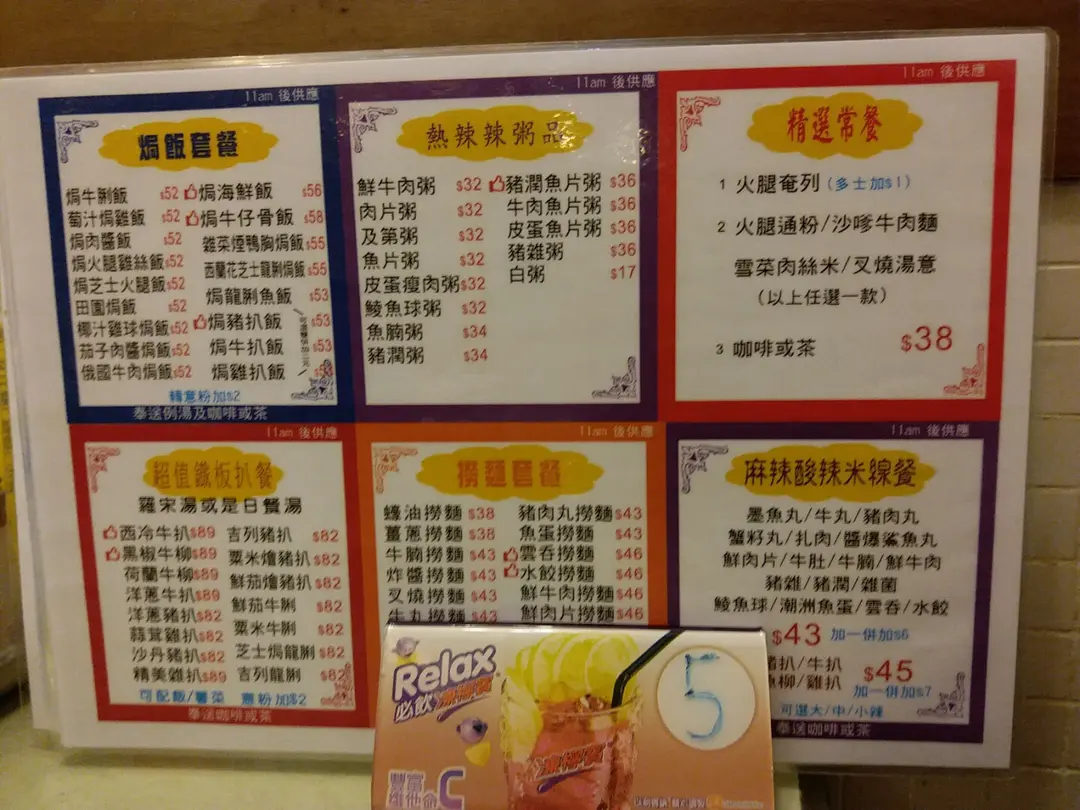 11am 後供應
焗飯套餐
焗牛脷飯 $52
葡汁焗雞飯 $52
焗肉醬飯 $52
焗火腿雞絲飯$52
焗芝士火腿飯$52
田園焗飯 $52
椰汁雞球焗飯$52
茄子肉醬焗飯$52
俄國牛肉焗飯$52
焗海鮮飯 $56
焗牛仔骨飯 $58
雜菜煙鴨胸焗飯$55
西蘭花芝士龍脷焗飯$55
焗龍脷魚飯 $53
焗豬扒飯 $53
焗牛扒飯 $53
焗雞扒飯
轉意粉加$2
奉送例湯及咖啡或茶
11am 後供應
熱辣辣粥品
鮮牛肉粥 $32
肉片粥 $32
及第粥 $32
魚片粥 $32
皮蛋瘦肉粥$32
鯪魚球粥 $32
魚腩粥 $34
豬潤粥 $34
豬潤魚片粥 $36
牛肉魚片粥 $36
皮蛋魚片粥 $36
豬雜粥 $36
白粥 $17
11am 後供應
精選常餐
1 火腿奄列 (多士加$1)
2 火腿通粉/沙嗲牛肉麵
雪菜肉絲米/叉燒湯意
(以上任選一款)
3 咖啡或茶 $38
11am 後供應
超值鐵板扒餐
羅宋湯或是日餐湯
西冷牛扒$89
黑椒牛柳$89
荷蘭牛柳$89
洋蔥牛扒$89
洋蔥豬扒$82
蒜茸雞扒$82
沙丹豬扒$82
精美雜扒$89
吉列豬扒 $82
粟米燴豬扒$82
鮮茄燴豬扒$82
鮮茄牛脷 $82
粟米牛脷 $82
芝士焗龍脷$82
吉列龍脷 $82
可配飯/薯菜 意粉加$2
奉送咖啡或茶
11am 後供應
撈麵套餐
蠔油撈麵$38
薑蔥撈麵$38
牛腩撈麵$43
炸醬撈麵$43
叉燒撈麵$43
牛丸撈麵$43
豬肉丸撈麵$43
魚蛋撈麵 $43
雲吞撈麵 $46
水餃撈麵 $46
鮮牛肉撈麵$46
鮮肉片撈麵$46
11am 後供應
麻辣酸辣米線餐
墨魚丸/牛丸/豬肉丸
蟹籽丸/扎肉/醬爆鯊魚丸
鮮肉片/牛肚/牛腩/鮮牛肉
豬雜/豬潤/雜菌
鯪魚球/潮洲魚蛋/雲吞/水餃
$43 加一併加$6
豬扒/牛扒
魚柳/雞扒 $45
加一併加$7
可選大/中/小辣
奉送咖啡或茶
Relax
必飲凍檸賓
5
凍檸賓
豐富
維他命C